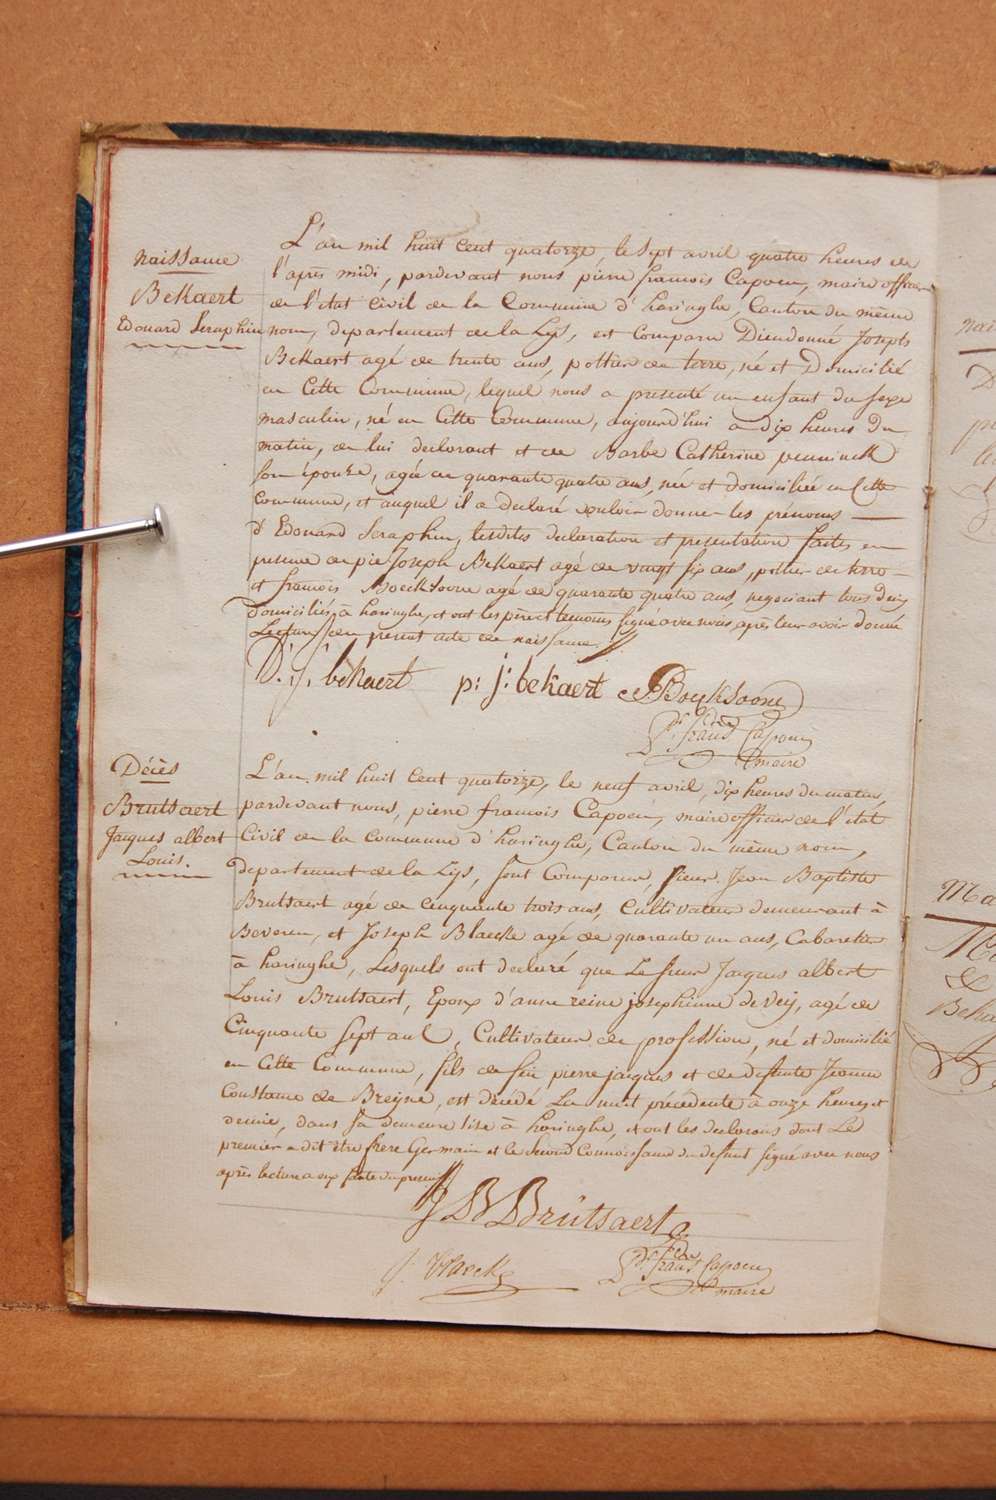 naissance
Bekaert
Edouard Seraphin
L'an mil huit cent quatorze, le sept avril quatre heures de
l'après midi, pardevant nous pierre francois Capoen, maire officier
de l'état Civil de la Commune d'haringhe, Canton du même
nom, departement de la Lys, est comparu Dieudonné Joseph
Bekaert agé de trente ans, pottier de terre, né et Domicilié
en Cette Commune, lequel nous a presenté un enfant du sexe
masculin, né en Cette Commune, aujourd'hui a dix heures du
matin, de lui declarant et de Barbe Catherine penninck
son épouze, agée de quarante quatre ans, née et domiciliée en Cette
commune, et auquel il a declaré vouloir donner les prénoms
d'Edouard Seraphin, lesdites declaration et presentation faites en
presence de pie Joseph Bekaert agé de vingt six ans, pottier de terre
et francois Boecksoone agé de quarante quatre ans, negociant tous deux
domiciliés à haringhe, et ont les père et temoins signé avec nous, après leur avoir donné
Lecture du present acte de naissance.
D. j. bekaert p: j: bekaert Boecksoone
Pr. frans Capoen
maire
Décès
Brutsaert
Jacques albert
Louis.
L'an mil huit cent quatorze, le neuf avril, dix heures du matin,
pardevant nous, pierre francois Capoen, maire officier de l'état
Civil de la Commune d'haringhe, Canton du même nom,
departement de la Lys, sont Comparus, sieur Jean Baptiste
Brutsaert agé de Cinquante trois ans, Cultivateur demeurant à
Beveren, et Joseph Blaecke agé de quarante un ans, Cabaretier
à haringhe, Lesquels ont declaré que Le sieur Jacques albert
Louis Brutsaert, Epoux d'anne reine josephinne de Vey, agé de
Cinquante sept ans, Cultivateur de profession, né et domicilié
en Cette Commune, fils de feu pierre jacques et de defunte Jeanne
Constance de Breyne, est décédé La nuit précédente à onze heures et
demie, dans sa demeure sise à haringhe, et ont les declarans dont Le
premier a dit être frere Germain et le second Connoissance du defunt signé avec nous
après lecture a eux faite du present
J B Brutsaert
j. blaecke
Pr. frans Capoen
maire